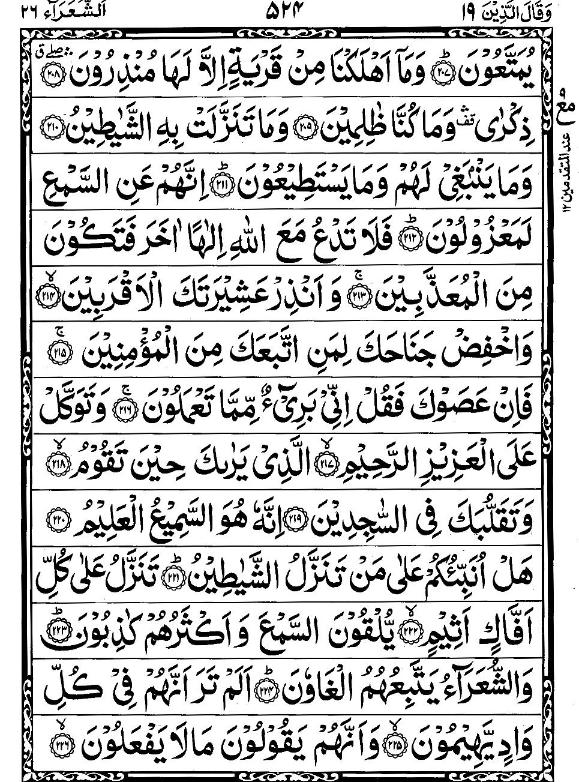 وَقَالَ الَّذِيْنَ ١٩ ٥٢٤ اَلشُّعَرَآء ٢٦
يُمَتَّعُوْنَ ؕ﴿٢٠٧﴾ وَمَاۤ اَهْلَكْنَا مِنْ قَرْيَةٍ اِلَّا لَهَا مُنْذِرُوْنَ ﴿٢٠٨﴾
ذِكْرٰى ۛ وَمَا كُنَّا ظٰلِمِيْنَ ﴿٢٠٩﴾ وَمَا تَنَزَّلَتْ بِهِ الشَّيٰطِيْنُ ﴿٢١٠﴾
وَمَا يَنْۢبَغِيْ لَهُمْ وَمَا يَسْتَطِيْعُوْنَ ؕ﴿٢١١﴾ اِنَّهُمْ عَنِ السَّمْعِ
لَمَعْزُوْلُوْنَ ؕ﴿٢١٢﴾ فَلَا تَدْعُ مَعَ اللّٰهِ اِلٰهًا اٰخَرَ فَتَكُوْنَ
مِنَ الْمُعَذَّبِيْنَ ۚ﴿٢١٣﴾ وَاَنْذِرْ عَشِيْرَتَكَ الْاَقْرَبِيْنَ ۙ﴿٢١٤﴾
وَاخْفِضْ جَنَاحَكَ لِمَنِ اتَّبَعَكَ مِنَ الْمُؤْمِنِيْنَ ۚ﴿٢١٥﴾
فَاِنْ عَصَوْكَ فَقُلْ اِنِّيْ بَرِيْٓءٌ مِّمَّا تَعْمَلُوْنَ ۚ﴿٢١٦﴾ وَتَوَكَّلْ
عَلَى الْعَزِيْزِ الرَّحِيْمِ ۙ﴿٢١٧﴾ الَّذِيْ يَرٰىكَ حِيْنَ تَقُوْمُ ۙ﴿٢١٨﴾
وَتَقَلُّبَكَ فِى السّٰجِدِيْنَ ﴿٢١٩﴾ اِنَّهٗ هُوَ السَّمِيْعُ الْعَلِيْمُ ﴿٢٢٠﴾
هَلْ اُنَبِّئُكُمْ عَلٰى مَنْ تَنَزَّلُ الشَّيٰطِيْنُ ؕ﴿٢٢١﴾ تَنَزَّلُ عَلٰى كُلِّ
اَفَّاكٍ اَثِيْمٍ ۙ﴿٢٢٢﴾ يُّلْقُوْنَ السَّمْعَ وَاَكْثَرُهُمْ كٰذِبُوْنَ ؕ﴿٢٢٣﴾
وَالشُّعَرَآءُ يَتَّبِعُهُمُ الْغَاوٗنَ ؕ﴿٢٢٤﴾ اَلَمْ تَرَ اَنَّهُمْ فِيْ كُلِّ
وَادٍ يَّهِيْمُوْنَ ۙ﴿٢٢٥﴾ وَاَنَّهُمْ يَقُوْلُوْنَ مَا لَا يَفْعَلُوْنَ ۙ﴿٢٢٦﴾
مع
عند المتقدمين ١٢